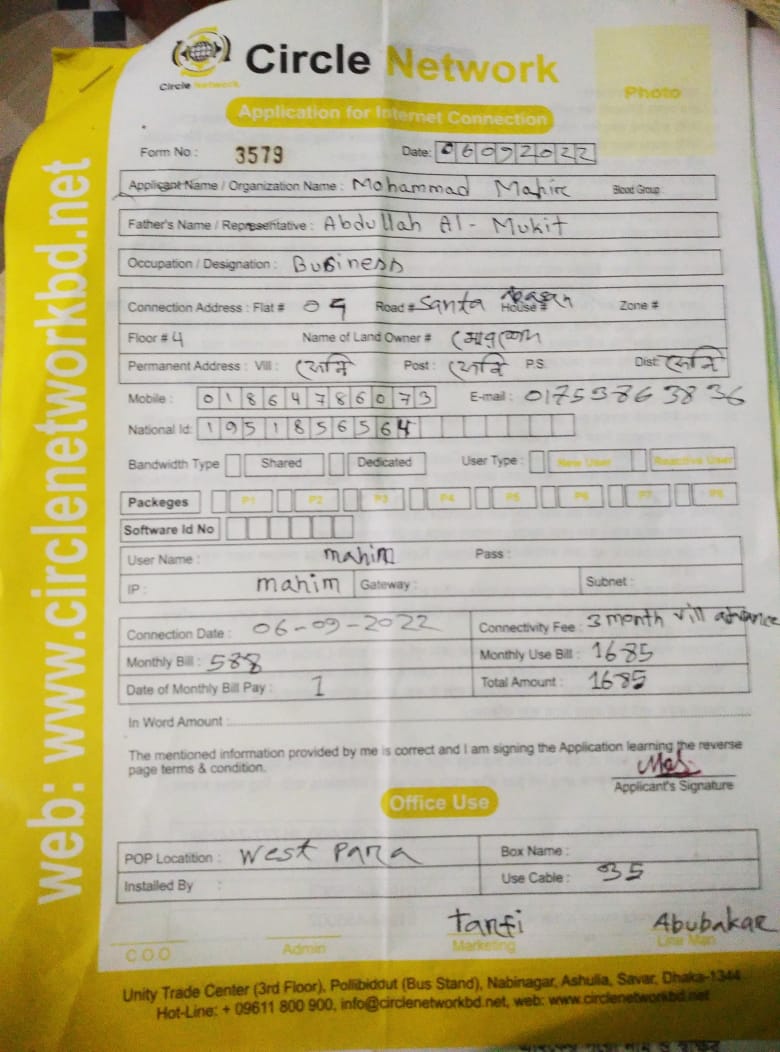 Circle Network
Circle Network
Photo
Application for Internet Connection
Form No : 3579 Date: 06092022
Applicant Name / Organization Name : Mohammad Mahir Blood Group :
Father's Name / Representative : Abdullah Al - Mukit
Occupation / Designation : Business
Connection Address : Flat # 05 Road # Santa House # Zone #
Floor # 4 Name of Land Owner #
Permanent Address : Vill : ফেনি Post : ফেনি P.S. Dist ফেনি
Mobile : 01864786073 E-mail : 01753863836
National Id: 1951856564
Bandwidth Type Shared Dedicated User Type : New User Reactive User
Packeges P1 P2 P3 P4 P5 P6 P7 P8
Software Id No
User Name : mahim Pass :
IP : mahim Gateway : Subnet :
Connection Date : 06-09-2022 Connectivity Fee : 3 month vill advance
Monthly Bill : 588 Monthly Use Bill : 1685
Date of Monthly Bill Pay : 1 Total Amount : 1685
In Word Amount :
The mentioned information provided by me is correct and I am signing the Application learning the reverse
page terms & condition.
Applicant's Signature
Office Use
POP Locatition : West Para Box Name :
Installed By : Use Cable : 35
Tanfi Abubakar
C.O.O Admin Marketing Line Man
Unity Trade Center (3rd Floor), Pollibiddut (Bus Stand), Nabinagar, Ashulia, Savar, Dhaka-1344
Hot-Line: + 09611 800 900, info@circlenetworkbd.net, web: www.circlenetworkbd.net
web: www.circlenetworkbd.net